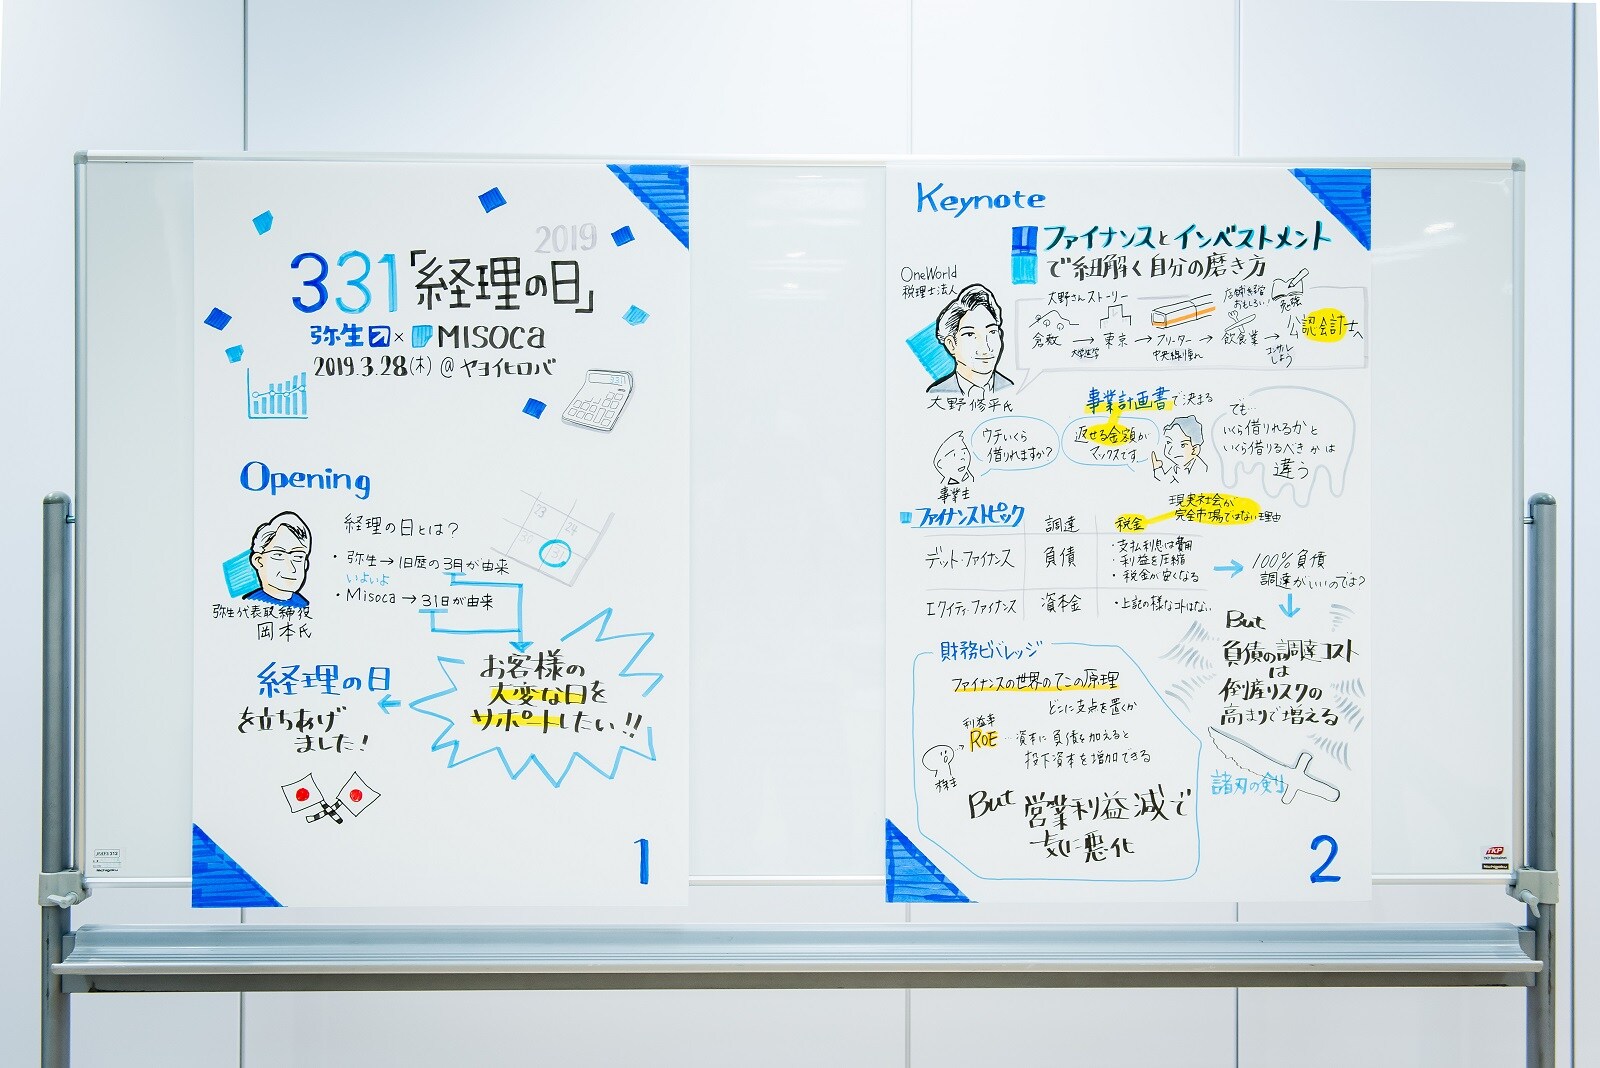 2019
331「経理の日」
弥生 × MISOCA
2019.3.28(木) @ ヤヨイヒロバ
331
Opening
経理の日とは?
・弥生→旧歴の3月が由来
いよいよ
・Misoca → 31日が由来
23
24
30
31
弥生代表取締役
岡本氏
お客様の
大変な日を
サポートしたい!!
経理の日
を立ちあげ
ました!
1
Keynote
ファイナンスとインベストメント
で紐解く自分の磨き方
OneWorld
税理士法人
大野修平氏
大野さんストーリー
店舗経営
おもしろい!
勉強
倉敷 → 東京 → フリーター → 飲食業 → 公認会計士へ
大学進学
中央線憧れ
コンサル
しよう
事業計画書で決まる
ウチいくら
借りれますか?
事業主
返せる金額が
マックスです
でも…
いくら借りれるかと
いくら借りるべきかは
違う
ファイナンストピック
調達
税金
現実社会が
完全市場ではない理由
デット・ファイナンス
負債
・支払利息は費用
・利益を圧縮
・税金が安くなる
エクイティ・ファイナンス
資本金
・上記の様なコトはない
100%負債
調達がいいのでは?
But
負債の調達コスト
は
倒産リスクの
高まりで増える
諸刃の剣
財務レバレッジ
ファイナンスの世界のてこの原理
どこに支点を置くか
利益率
ROE … 資本に負債を加えると
投下資本を増加できる
株主
But 営業利益減で
一気に悪化
2
TKP